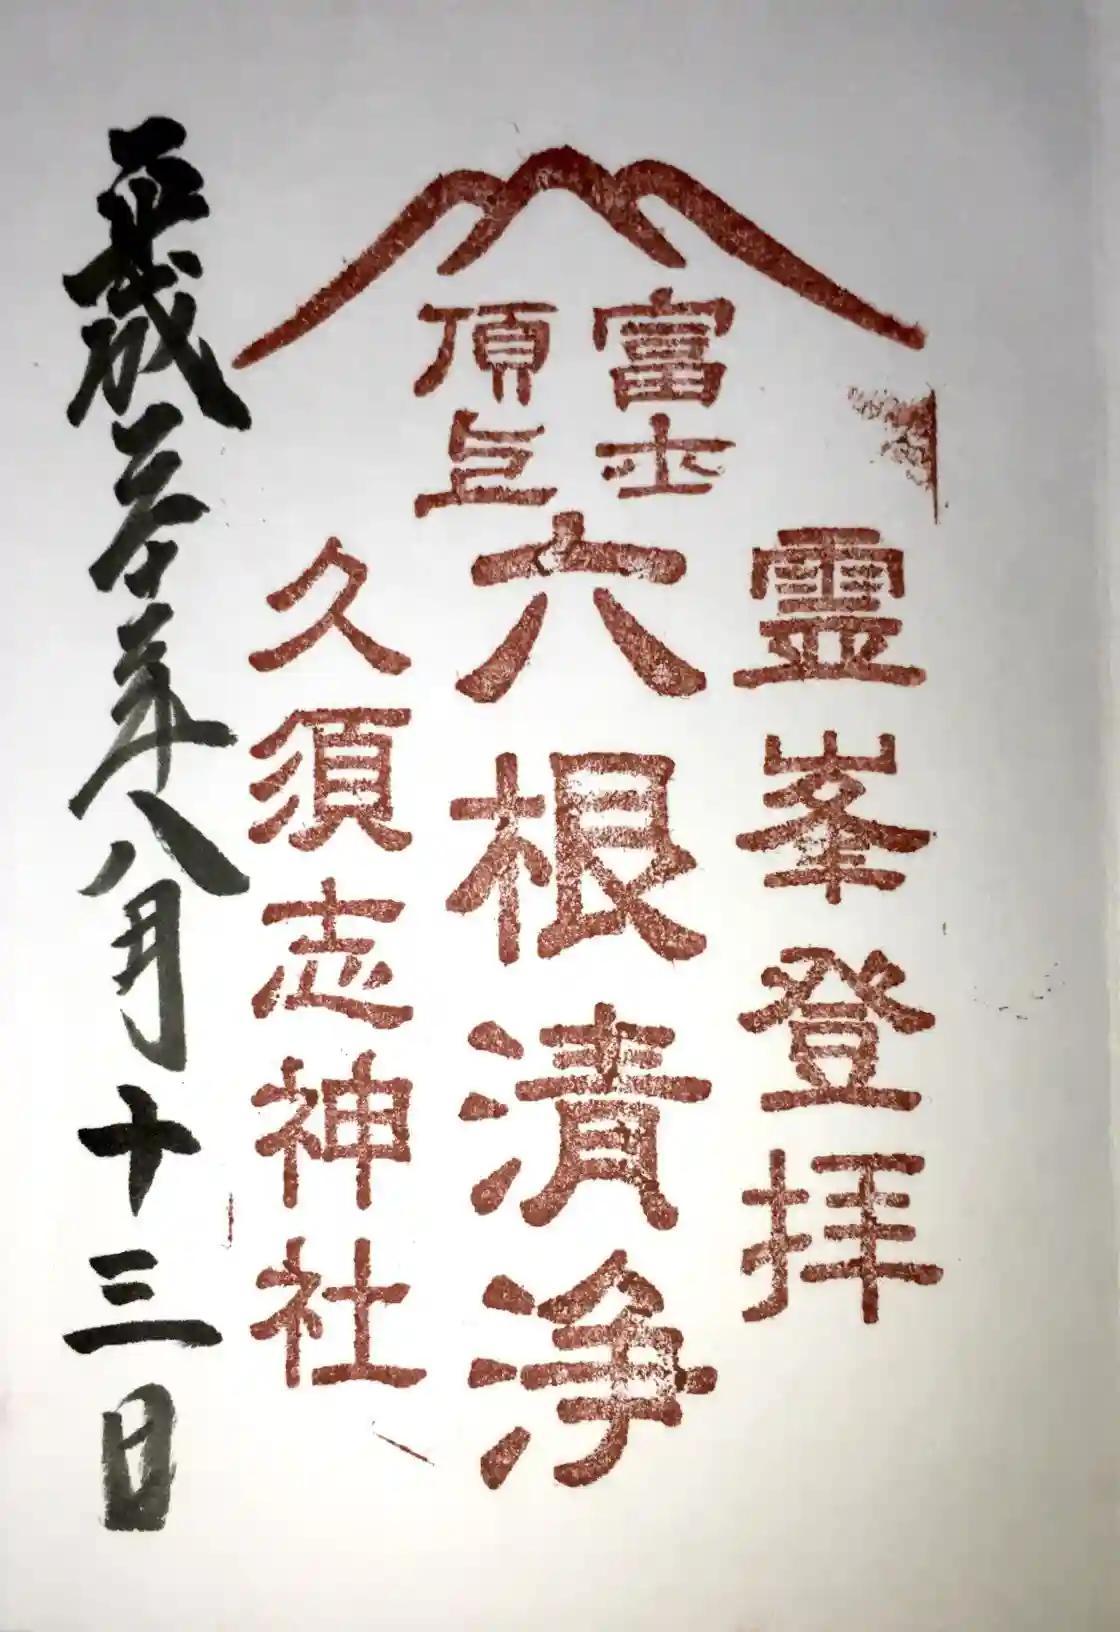 富士
頂上
霊峯登拝
六根清浄
久須志神社
平成年八月十三日